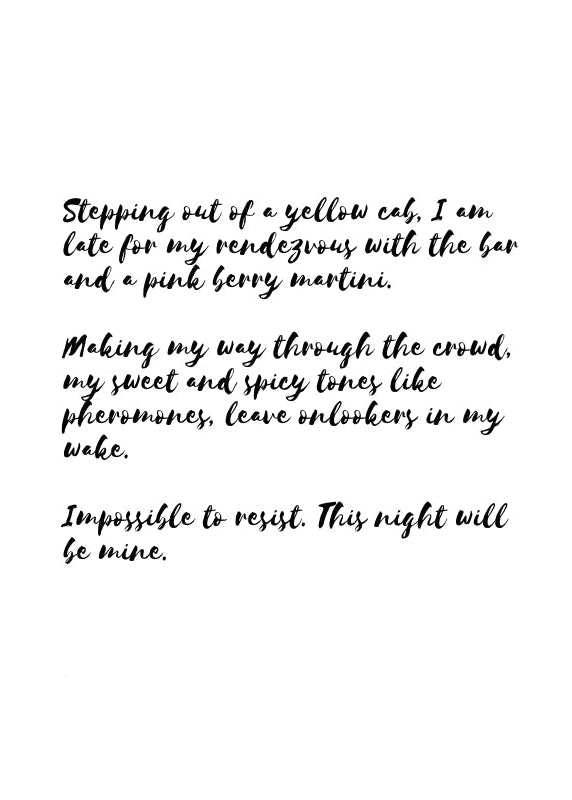 Stepping out of a yellow cab, I am
late for my rendezvous with the bar
and a pink berry martini.
Making my way through the crowd,
my sweet and spicy tones like
pheromones, leave onlookers in my
wake.
Impossible to resist. This night will
be mine.